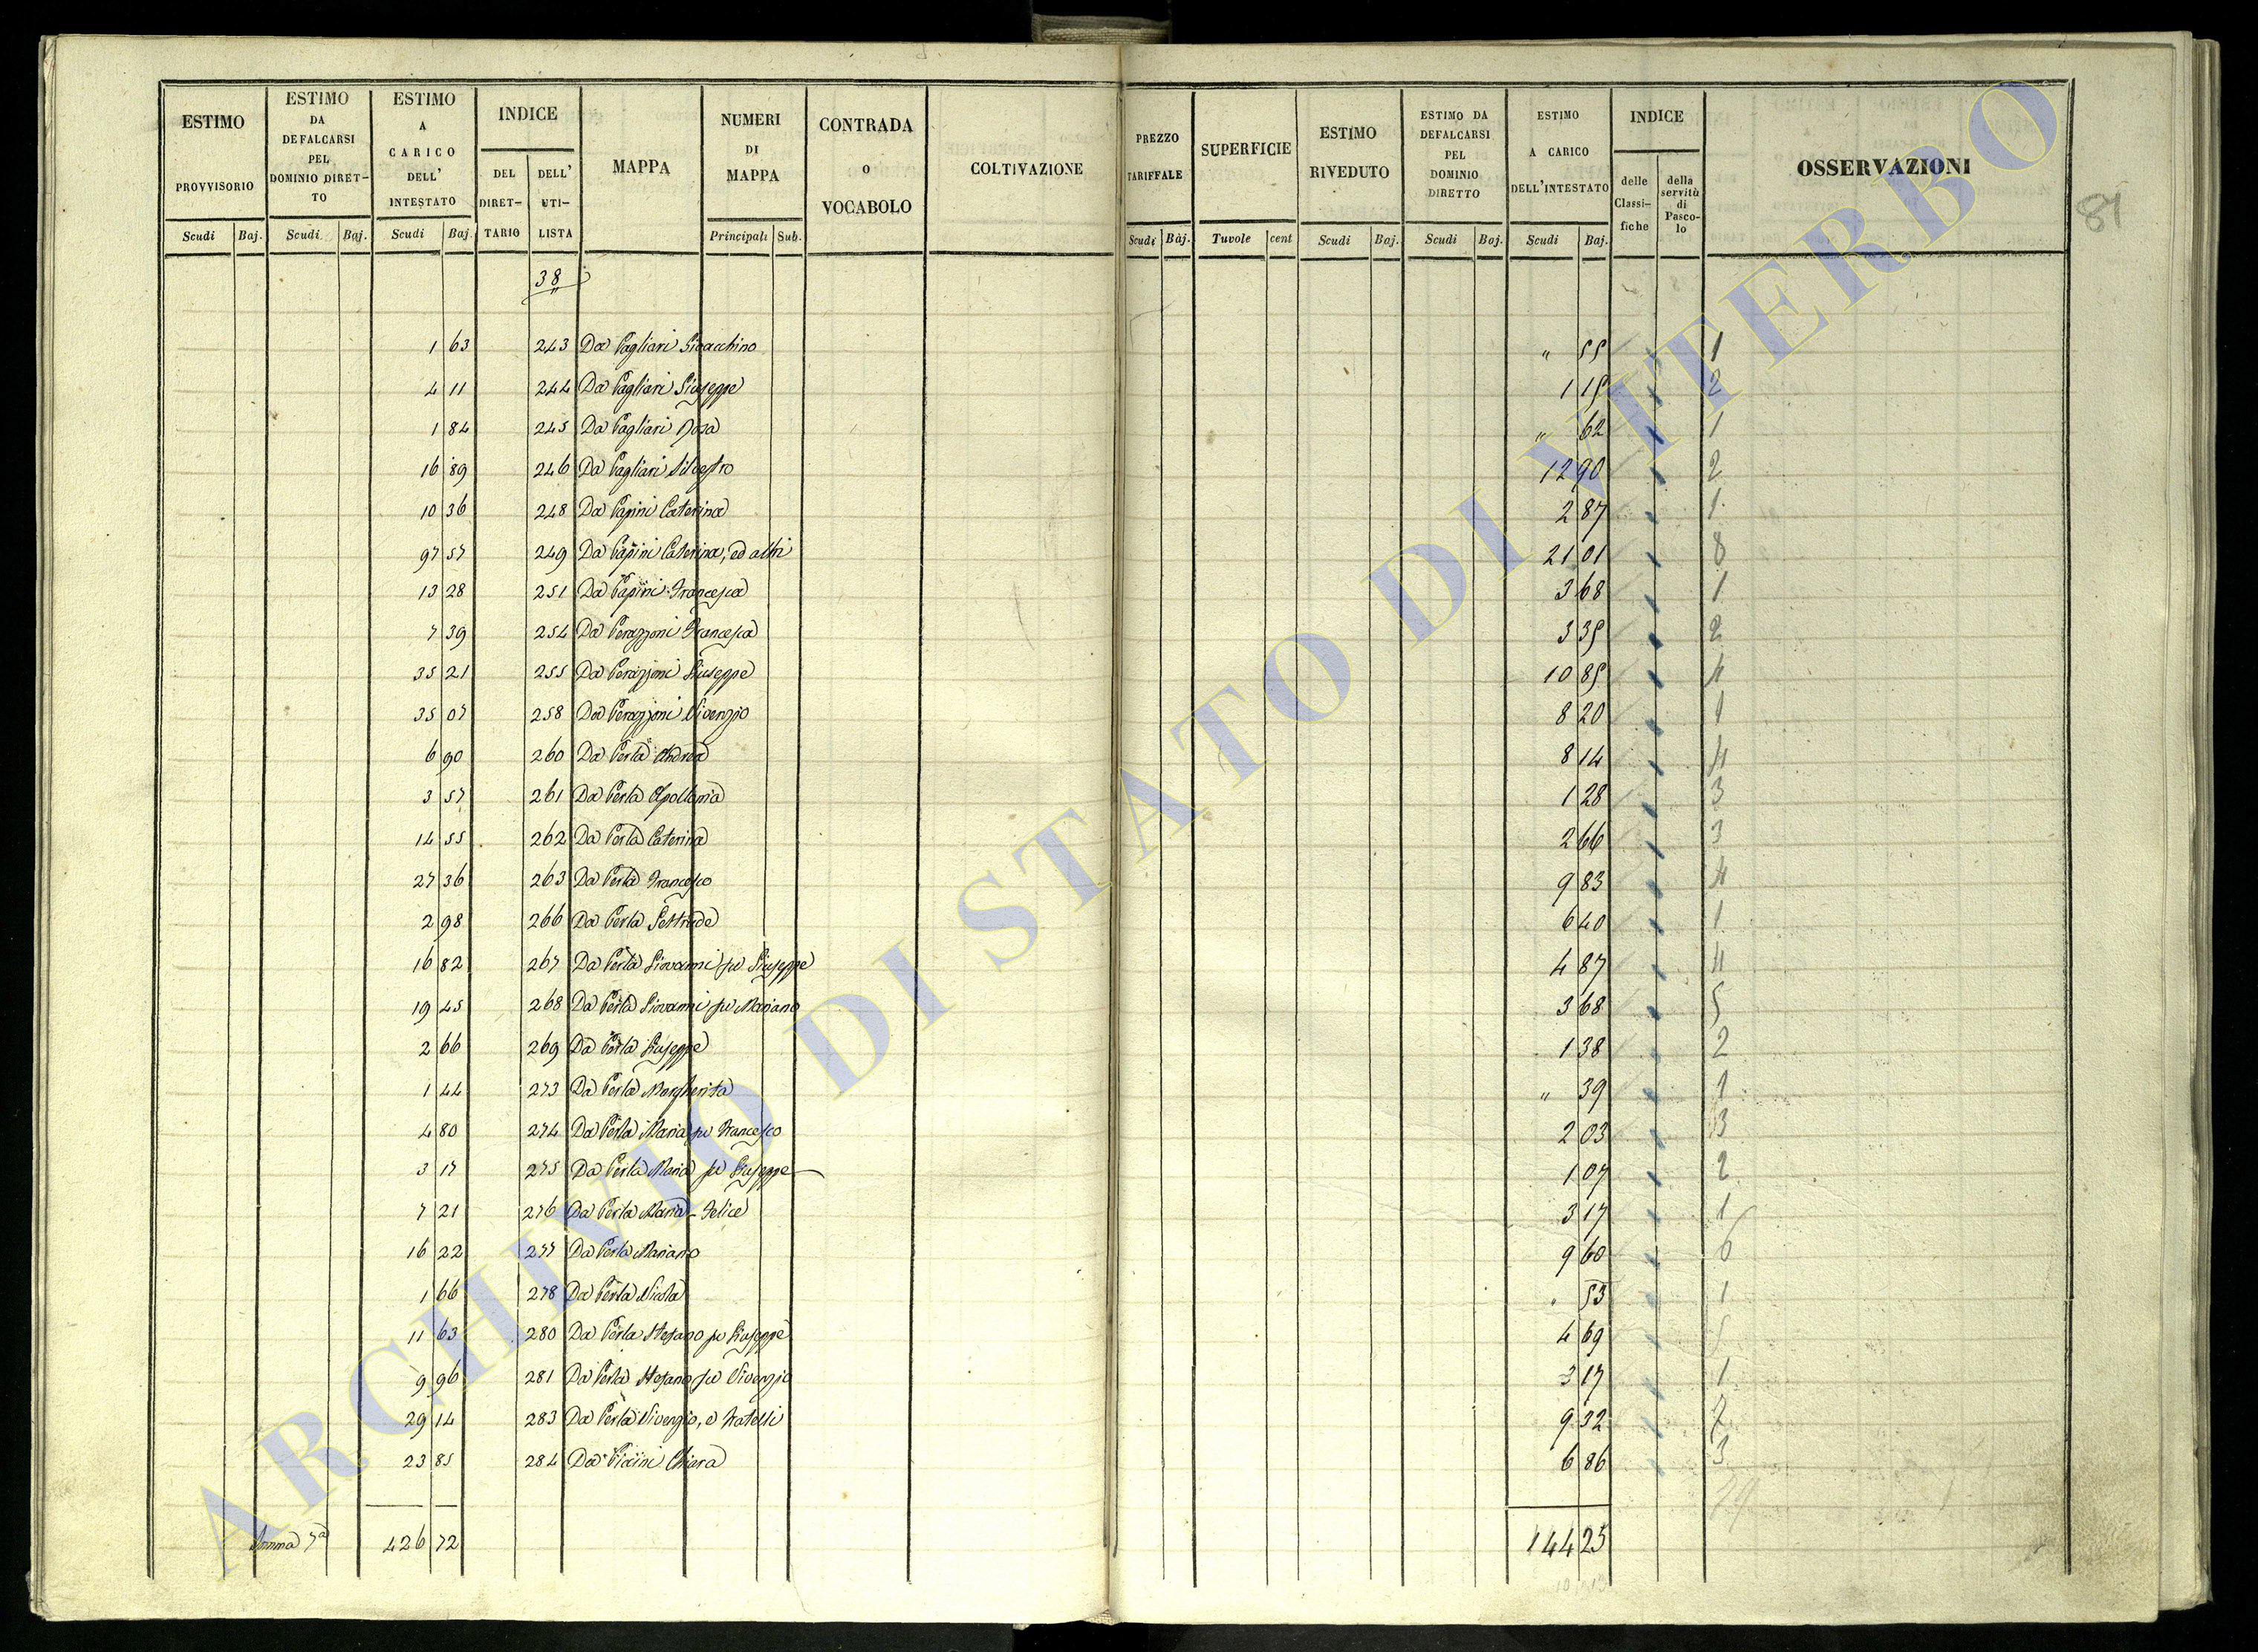 ESTIMO PROVVISORIO
ESTIMO DA DEFALCARSI PEL DOMINIO DIRET-TO
ESTIMO A CARICO DELL' INTESTATO
INDICE
DEL DIRET-TARIO
DELL' UTI-LISTA
MAPPA
NUMERI DI MAPPA
CONTRADA o VOCABOLO
COLTIVAZIONE
PREZZO TARIFFALE
SUPERFICIE
ESTIMO RIVEDUTO
ESTIMO DA DEFALCARSI PEL DOMINIO DIRETTO
ESTIMO A CARICO DELL'INTESTATO
INDICE
delle Classi-fiche
della servitù di Pasco-lo
OSSERVAZIONI
Scudi Baj. Scudi Baj. Scudi Baj. Principali Sub. Scudi Baj. Tuvole cent Scudi Baj. Scudi Baj. Scudi Baj.
81
38
1 63 243 Da Pagliari Gioacchino " 55 1
4 11 244 Da Pagliari Giuseppe 1 15 2
1 84 245 Da Pagliari Rosa " 62 1
16 89 246 Da Pagliari Silvestro 12 90 2
10 36 248 Da Papini Caterina 2 87 1
97 57 249 Da Papini Caterina, ed altri 21 01 8
13 28 251 Da Papini Francesca 3 68 1
7 39 254 Da Perazzoni Francesca 3 35 2
35 21 255 Da Perazzoni Giuseppe 10 85 4
35 07 258 Da Perazzoni Vicenzo 8 20 1
6 90 260 Da Perla Andrea 8 14 4
3 57 261 Da Perla Apollonia 1 28 3
14 55 262 Da Perla Caterina 2 66 3
27 36 263 Da Perla Francesco 9 83 4
2 98 266 Da Perla Geltrude 6 40 1
16 82 267 Da Perla Giovanni fu Giuseppe 4 87 4
19 45 268 Da Perla Giovanni fu Mariano 3 68 5
2 66 269 Da Perla Giuseppe 1 38 2
1 44 273 Da Perla Margherita " 39 1
4 80 274 Da Perla Maria fu Francesco 2 03 3
3 17 275 Da Perla Maria fu Giuseppe 1 07 2
7 21 276 Da Perla Maria-Felice 3 17 1
16 22 277 Da Perla Mariano 9 60 6
1 66 278 Da Perla Nicola " 53 1
11 63 280 Da Perla Stefano fu Giuseppe 4 69 5
9 96 281 Da Perla Stefano fu Vicenzo 3 17 1
29 14 283 Da Perla Vicenzo, e Fratelli 9 32 7
23 85 284 Da Picini Chiara 6 86 3
79
Somma 7a 426 72 144 25
ARCHIVIO DI STATO DI VITERBO